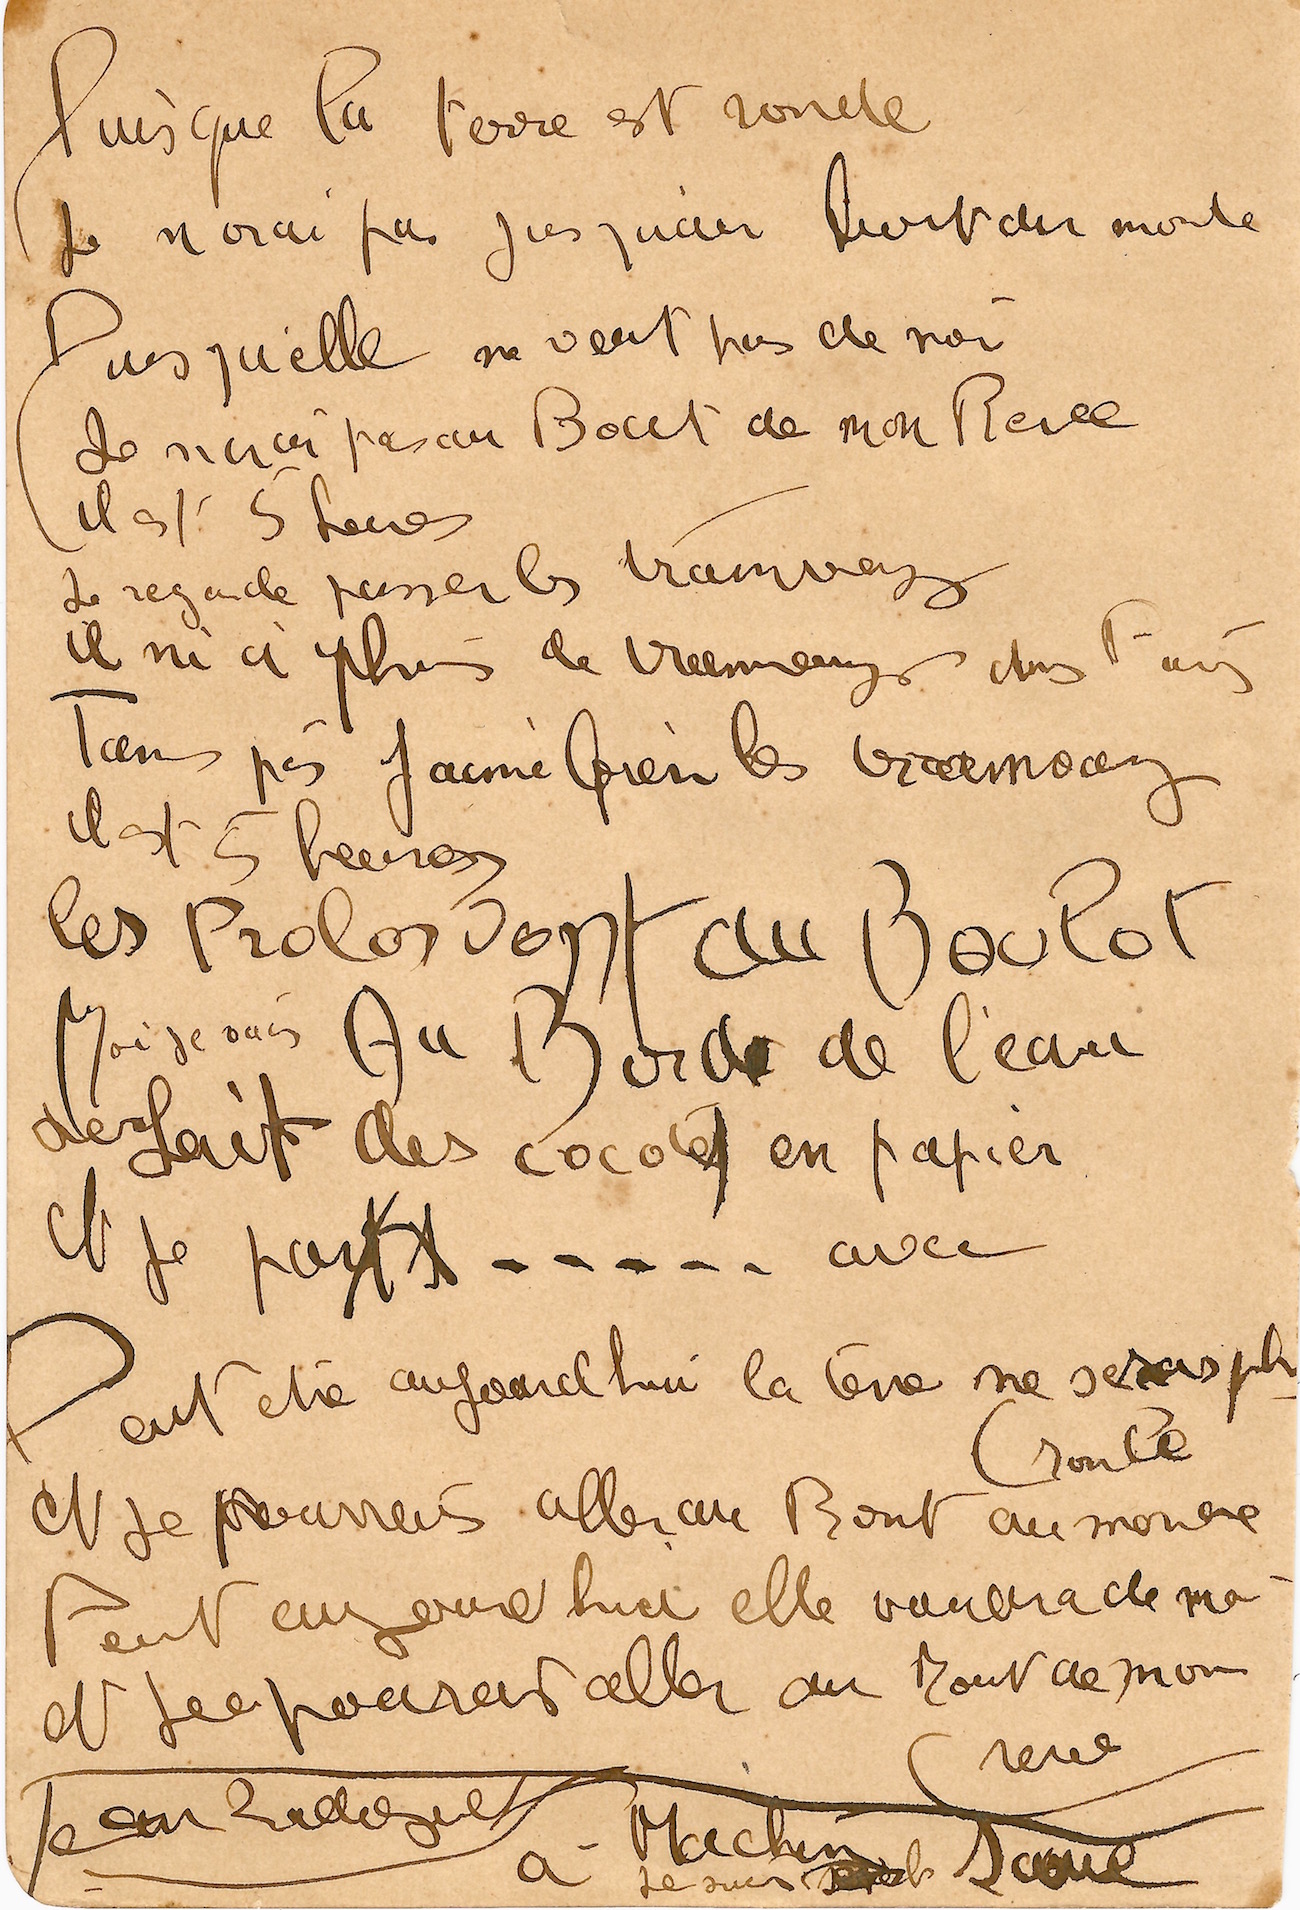 Puisque la terre est ronde
Je n irai pas jusqu'au bout du monde
Puisqu'elle ne veut pas de moi
Je n irai pas au Bout de mon Reve
il est 5 heures
Je regarde passer les tramways
il ni a plus de tramways dans Paris
Tans pis J'aime bien les tramways
il est 5 heures
les Prolos vont au Boulot
Moi je vais Au Bord de l'eau
des cocotes en papier
et je pars ------ avec
Peut etre aujourd'hui la terre ne seras plus
(ronde
et je pourrais aller au Bout du monde
Peut aujourd hui elle voudra de moi
et je pourais aller au Bout de mon
(reve
Jean
a - Machin
Je suis